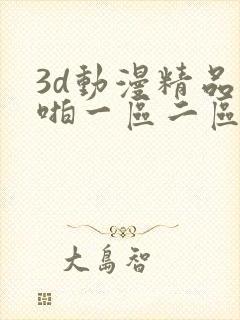 3d動漫精品
啪一區二區
大島智